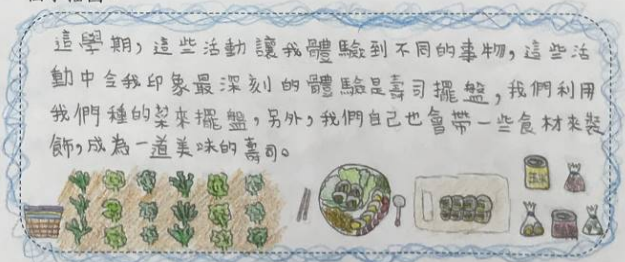 這學期，這些活動讓我體驗到不同的事物，這些活
動中令我印象最深刻的體驗是壽司擺盤，我們利用
我們種的菜來擺盤，另外，我們自己也會帶一些食材來裝
飾，成為一道美味的壽司。